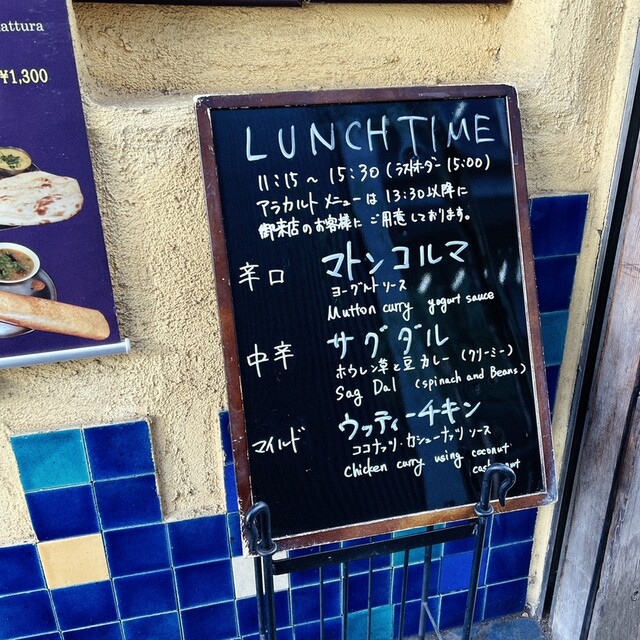 attura
¥1,300
LUNCH TIME
11:15 ~ 15:30 (ラストオーダー 15:00)
アラカルトメニューは 13:30以降に
御来店のお客様に ご用意しております。
辛口 マトンコルマ
ヨーグルトソース
Mutton curry yogurt sauce
中辛 サグダル
ホウレン草と豆カレー (クリーミー)
Sag Dal (spinach and Beans)
マイルド ウッティーチキン
ココナッツ・カシューナッツ ソース
Chicken curry using coconut